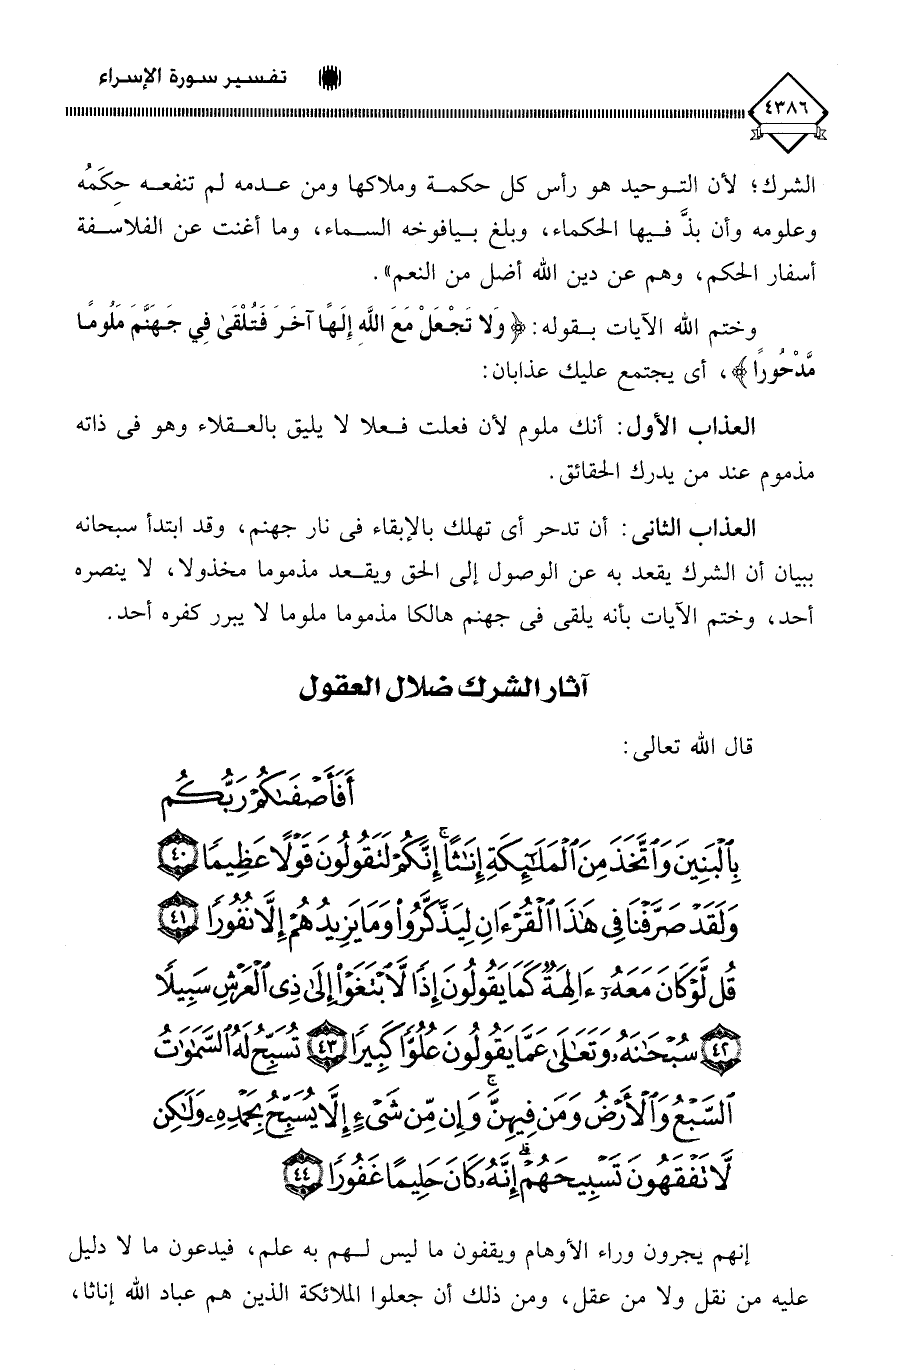 تفسير سورة الإسراء
٤٣٨٦
الشرك؛ لأن التوحيد هو رأس كل حكمة وملاكها ومن عدمه لم تنفعه حِكَمُه
وعلومه وأن بذَّ فيها الحكماء، وبلغ بيافوخه السماء، وما أغنت عن الفلاسفة
أسفار الحكم، وهم عن دين الله أضل من النعم».
وختم الله الآيات بقوله: ﴿وَلا تَجْعَلْ مَعَ اللَّهِ إِلَهًا آخَرَ فَتُلْقَىٰ فِي جَهَنَّمَ مَلُومًا
مَّدْحُورًا﴾، أى يجتمع عليك عذابان:
العذاب الأول: أنك ملوم لأن فعلت فعلا لا يليق بالعقلاء وهو فى ذاته
مذموم عند من يدرك الحقائق.
العذاب الثانى: أن تدحر أى تهلك بالإبقاء فى نار جهنم، وقد ابتدأ سبحانه
ببيان أن الشرك يقعد به عن الوصول إلى الحق ويقعد مذموما مخذولا، لا ينصره
أحد، وختم الآيات بأنه يلقى فى جهنم هالكا مذموما ملوما لا يبرر كفره أحد.
آثار الشرك ضلال العقول
قال الله تعالى:
أَفَأَصْفَىٰكُمْ رَبُّكُم
بِٱلْبَنِينَ وَٱتَّخَذَ مِنَ ٱلْمَلَـٰٓئِكَةِ إِنَـٰثًا ۚ إِنَّكُمْ لَتَقُولُونَ قَوْلًا عَظِيمًا ٤٠
وَلَقَدْ صَرَّفْنَا فِى هَـٰذَا ٱلْقُرْءَانِ لِيَذَّكَّرُوا۟ وَمَا يَزِيدُهُمْ إِلَّا نُفُورًا ٤١
قُل لَّوْ كَانَ مَعَهُۥٓ ءَالِهَةٌ كَمَا يَقُولُونَ إِذًا لَّٱبْتَغَوْا۟ إِلَىٰ ذِى ٱلْعَرْشِ سَبِيلًا
٤٢ سُبْحَـٰنَهُۥ وَتَعَـٰلَىٰ عَمَّا يَقُولُونَ عُلُوًّا كَبِيرًا ٤٣ تُسَبِّحُ لَهُ ٱلسَّمَـٰوَٰتُ
ٱلسَّبْعُ وَٱلْأَرْضُ وَمَن فِيهِنَّ ۚ وَإِن مِّن شَىْءٍ إِلَّا يُسَبِّحُ بِحَمْدِهِۦ وَلَـٰكِن
لَّا تَفْقَهُونَ تَسْبِيحَهُمْ ۗ إِنَّهُۥ كَانَ حَلِيمًا غَفُورًا ٤٤
إنهم يجرون وراء الأوهام ويقفون ما ليس لهم به علم، فيدعون ما لا دليل
عليه من نقل ولا من عقل، ومن ذلك أن جعلوا الملائكة الذين هم عباد الله إناثا،